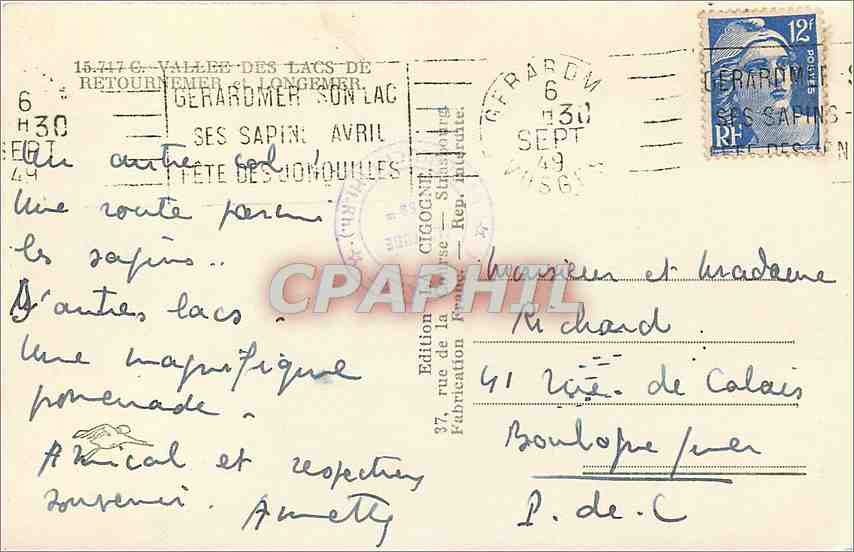 15.717 C. VALLEE DES LACS DE
RETOURNEMER et LONGEMER.
6
H 30
SEPT
49
GERARDMER SON LAC
SES SAPINS AVRIL
FETE DES JONQUILLES
GERARDM
6
H 30
SEPT
49
VOSGES
12F
POSTES
RF
GERARDMER S
SES SAPINS
Un autre col !
Une route parmi
les sapins..
D'autres lacs.
Une magnifique
promenade.
Amical et respectueux
souvenir. Annette
Edition LA CIGOGNE,
37, rue de la Course — Strasbourg.
Fabrication France. — Rep. interdite.
CPAPHIL
Monsieur et Madame
Richard.
41 rue de Calais
Boulogne s/mer
P. de. C